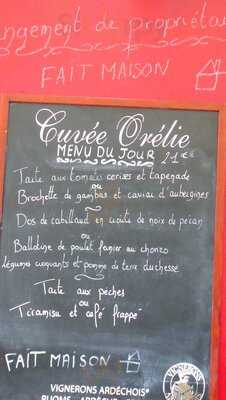 ngement de propriéta
FAIT MAISON
Cuvée Orélie
MENU DU JOUR 21€
Tarte aux tomates cerises et tapenade
ou
Brochette de gambas et caviar d'aubergines
Dos de cabillaud en croute de noix de pecan
ou
Ballotine de poulet fermier au chorizo
légumes croquants et pomme de terre duchesse
Tarte aux pêches
ou
Tiramisu et café frappé
FAIT MAISON
VIGNERONS ARDÉCHOIS
RUOMS - ARDÈCHE
VIGNERONS